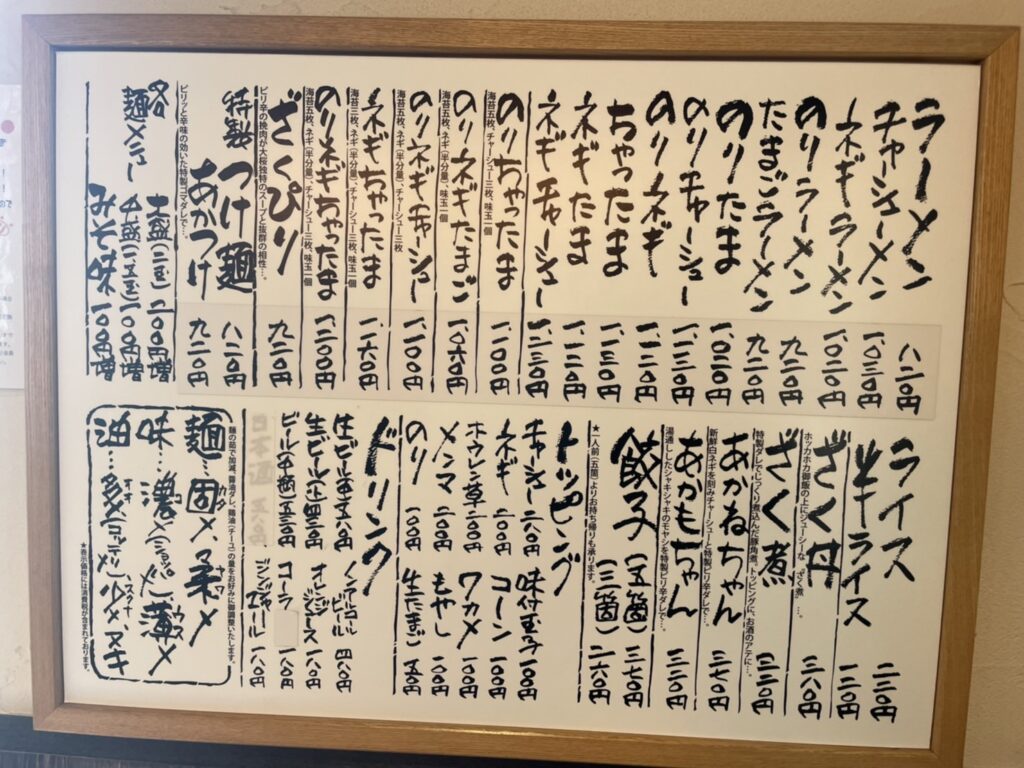 ラーメン 八二〇円
チャーシューメン 一、〇三〇円
ネギラーメン 一、〇二〇円
のりラーメン 九二〇円
たまごラーメン 九二〇円
のりたま 一、〇二〇円
のりチャーシュー 一、一三〇円
のりネギ 一、一二〇円
ちゃったま 一、一三〇円
ネギたま 一、一二〇円
ネギチャーシュー 一、二三〇円
のりちゃったま 一、一〇〇円
海苔五枚、チャーシュー三枚、味玉一個
のりネギたまご 一、〇六〇円
海苔五枚、ネギ(半分量)、味玉一個
のりネギチャーシュー 一、一〇〇円
海苔五枚、ネギ(半分量)、チャーシュー三枚
ネギちゃったま 一、一六〇円
海苔三枚、ネギ(半分量)、チャーシュー三枚、味玉一個
のりネギちゃったま 一、二〇〇円
海苔五枚、ネギ(半分量)、チャーシュー三枚、味玉一個
ざくぴり 九二〇円
ピリ辛の挽肉が大桜独特のスープと抜群の相性…。
特製つけ麺 八二〇円
あかつけ 九二〇円
ピリッと辛味の効いた特製ゴマダレで…。
各麺メニュー
大盛(二玉)二〇〇円増
中盛(一・五玉)一〇〇円増
みそ味 一〇〇円増
ライス 一二〇円
半ライス 一一〇円
ざく丼 三八〇円
ホッカホカ御飯の上にジューシーな「ざく煮」…。
ざく煮 三三〇円
特製ダレでじっくり煮込んだ豚角煮、トッピングに、お酒のアテに…。
あかねちゃん 三七〇円
新鮮白ネギを刻みチャーシューと特製ピリ辛ダレで…。
あかもちゃん 三三〇円
湯通ししたシャキシャキのモヤシを特製ピリ辛ダレで…。
餃子(五箇) 三七〇円
(三箇) 二六〇円
★一人前(五箇)よりお持ち帰りも承ります。
トッピング
チャーシュー 二八〇円
ネギ 二〇〇円
ホウレン草 一〇〇円
メンマ 二〇〇円
のり 一〇〇円
味付玉子 一〇〇円
コーン 一〇〇円
ワカメ 一〇〇円
もやし 一〇〇円
生たまご 五〇円
ドリンク
生ビール 五八〇円
生ビール(小) 四三〇円
ビール(中瓶) 五三〇円
日本酒
ノンアルコールビール 四八〇円
オレンジジュース 一八〇円
コーラ 一八〇円
ジンジャーエール 一八〇円
麺の茹で加減、醤油ダレ、鶏油(チーユ)の量をお好みに御調整いたします。
麺…固メ、柔メ
味…濃メ、薄メ
油…多メ、少メ、ヌキ
★表示価格には消費税が含まれております。